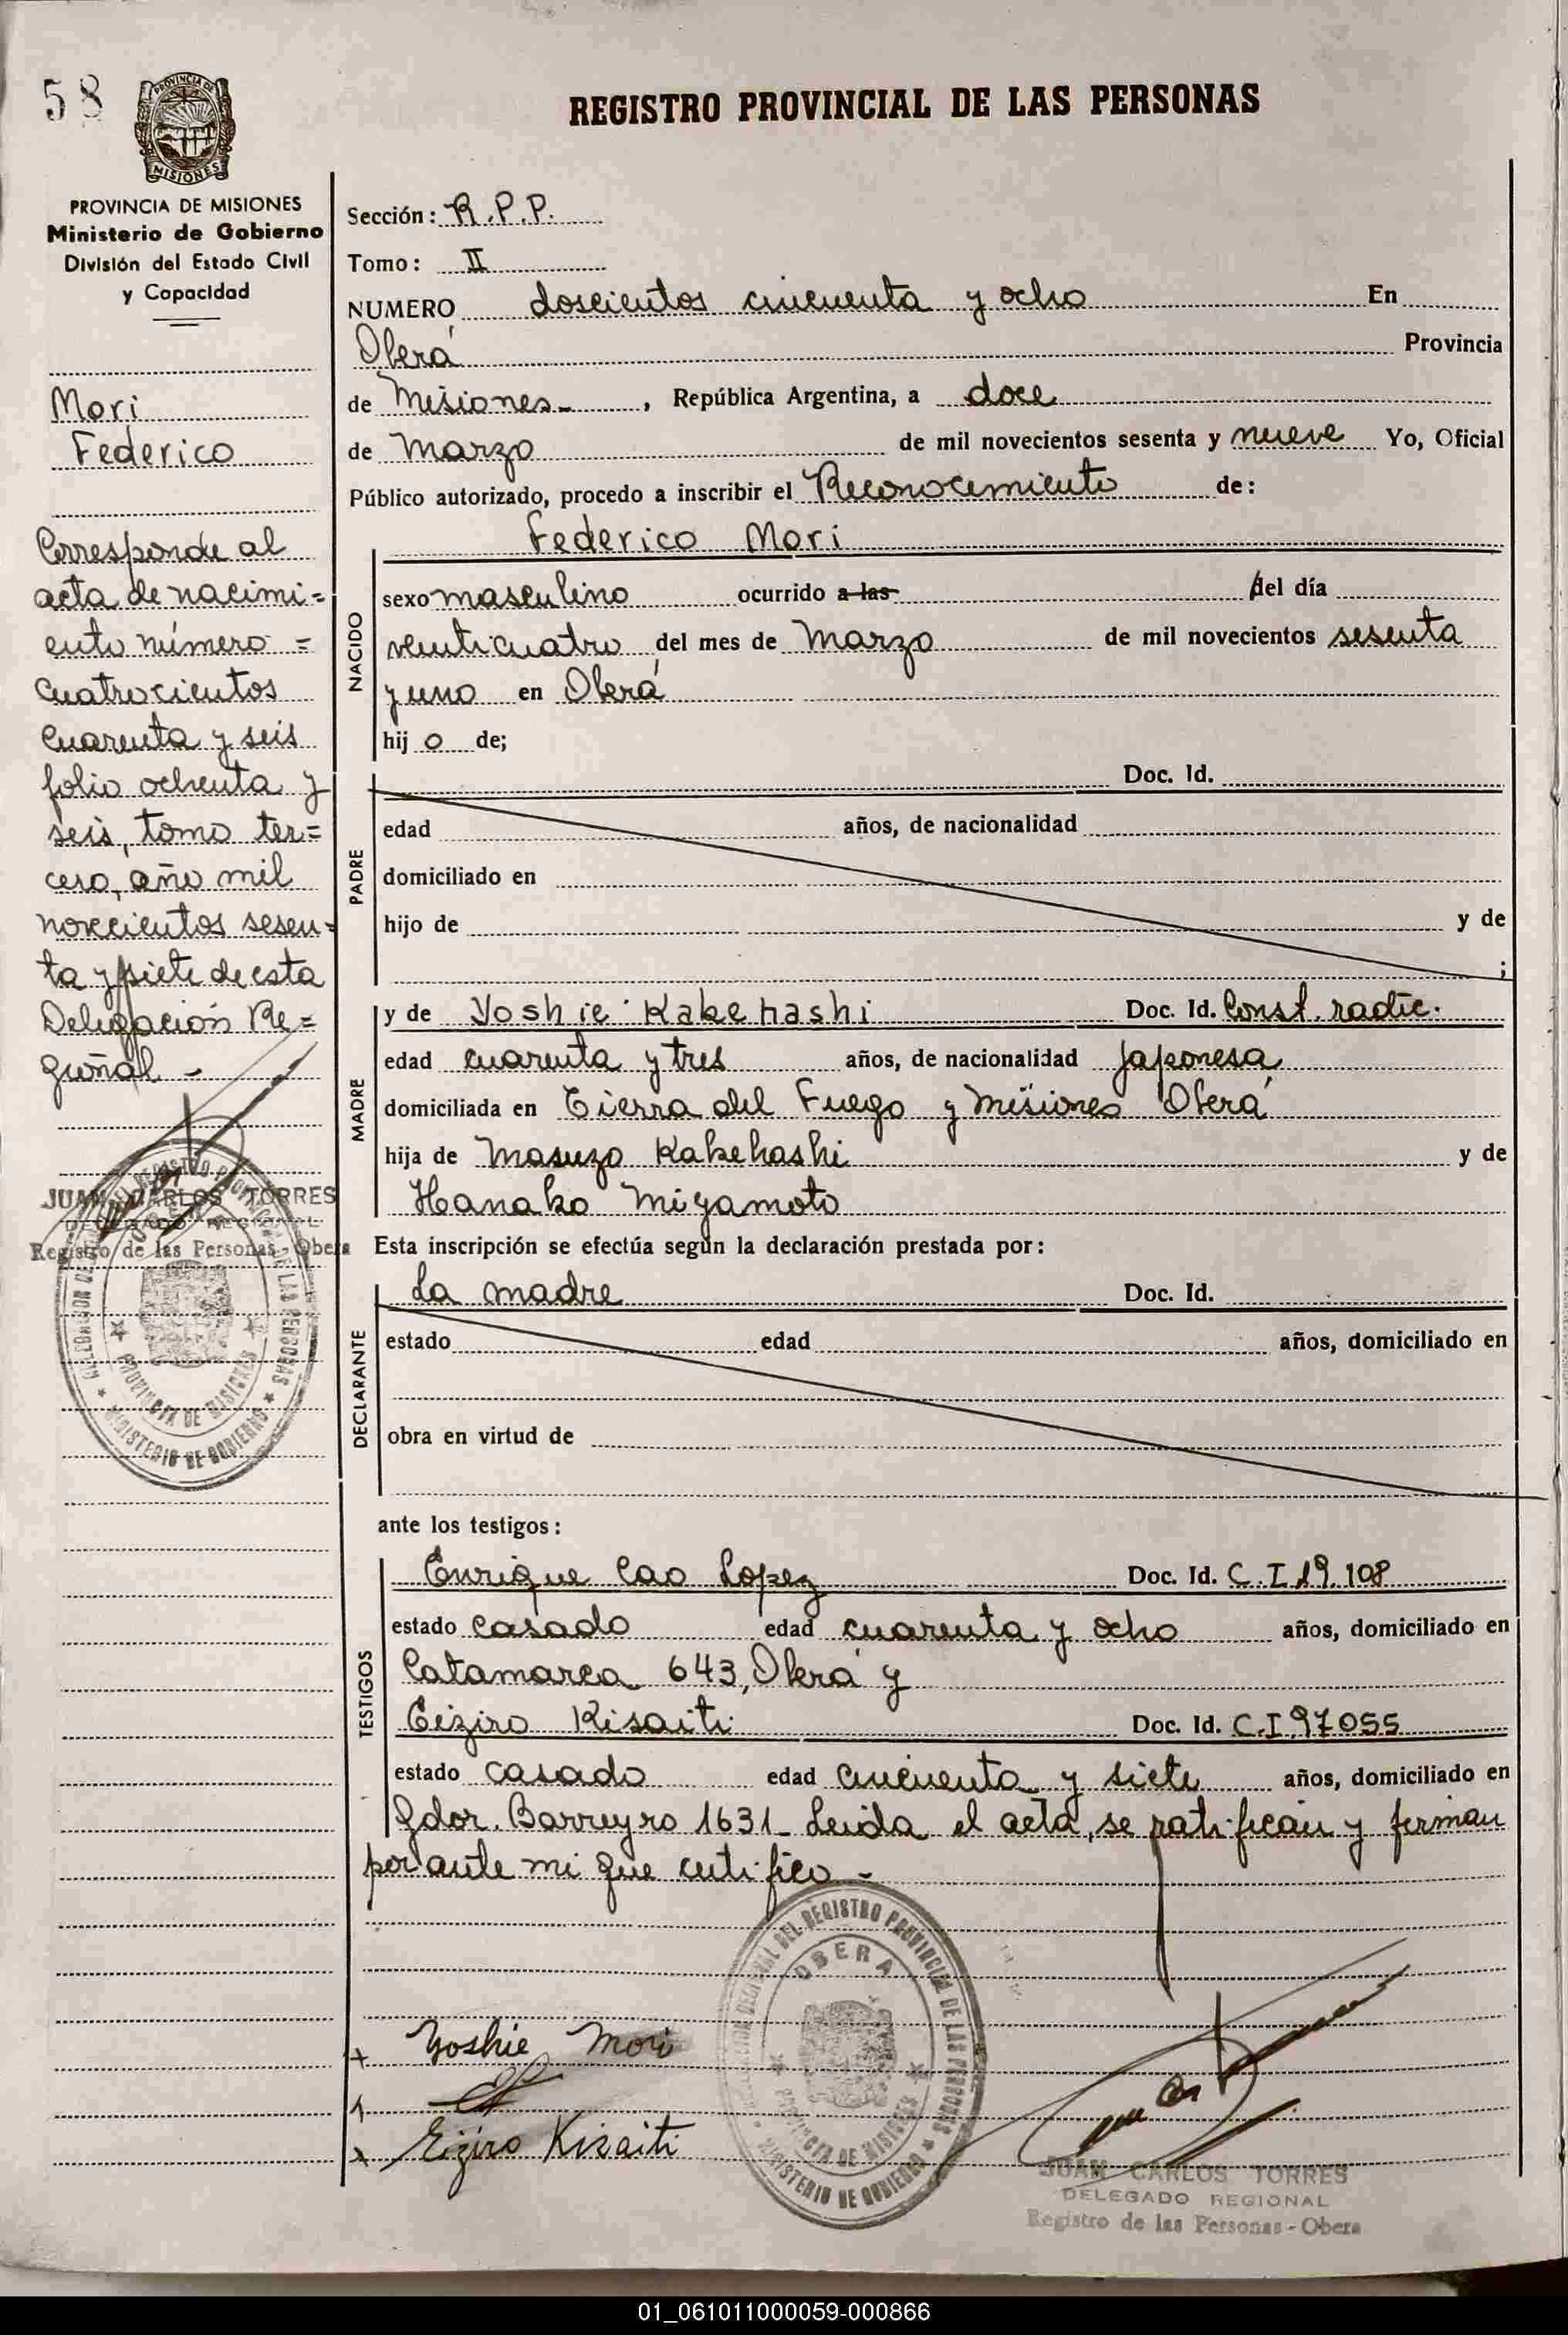 58
PROVINCIA DE
MISIONES
REGISTRO PROVINCIAL DE LAS PERSONAS
PROVINCIA DE MISIONES
Ministerio de Gobierno
División del Estado Civil
y Capacidad
Mori
Federico
Corresponde al
acta de nacimi=
ento número =
cuatrocientos
cuarenta y seis
folio ochenta y
seis, tomo ter=
cero, año mil
novecientos sesen=
ta y siete de esta
Delegación Re=
gional -
JUAN CARLOS TORRES
DELEGADO REGIONAL
Registro de las Personas - Obera
PROVINCIA DE MISIONES
MINISTERIO DE GOBIERNO
Sección: R.P.P.
Tomo: II
NUMERO doscientos cincuenta y ocho En
Oberá Provincia
de Misiones-, República Argentina, a doce
de Marzo de mil novecientos sesenta y nueve Yo, Oficial
Público autorizado, procedo a inscribir el Reconocimiento de:
Federico Mori
NACIDO
sexo masculino ocurrido a las del día
venticuatro del mes de Marzo de mil novecientos sesenta
y uno en Oberá
hij o de;
PADRE
Doc. Id.
edad años, de nacionalidad
domiciliado en
hijo de y de
;
MADRE
y de Yoshie Kakehashi Doc. Id. Const. radic.
edad cuarenta y tres años, de nacionalidad Japonesa
domiciliada en Tierra del Fuego y Misiones Oberá
hija de Masuzo Kakehashi y de
Hanako Miyamoto
Esta inscripción se efectúa según la declaración prestada por:
DECLARANTE
La madre Doc. Id.
estado edad años, domiciliado en
obra en virtud de
ante los testigos:
TESTIGOS
Enrique Cao Lopez Doc. Id. C.I 19.108
estado casado edad cuarenta y ocho años, domiciliado en
Catamarca 643, Oberá y
Eiziro Kisaiti Doc. Id. C.I 97055
estado casado edad cincuenta y siete años, domiciliado en
Gdor. Barreyro 1631- Leida el acta, se ratifican y firman
por ante mi que certifico -
DELEGACION REGIONAL DEL REGISTRO PROVINCIAL DE LAS PERSONAS
OBERA
PROVINCIA DE MISIONES
MINISTERIO DE GOBIERNO
Yoshie Mori
Eiziro Kisaiti
JUAN CARLOS TORRES
DELEGADO REGIONAL
Registro de las Personas - Obera
01_061011000059-000866